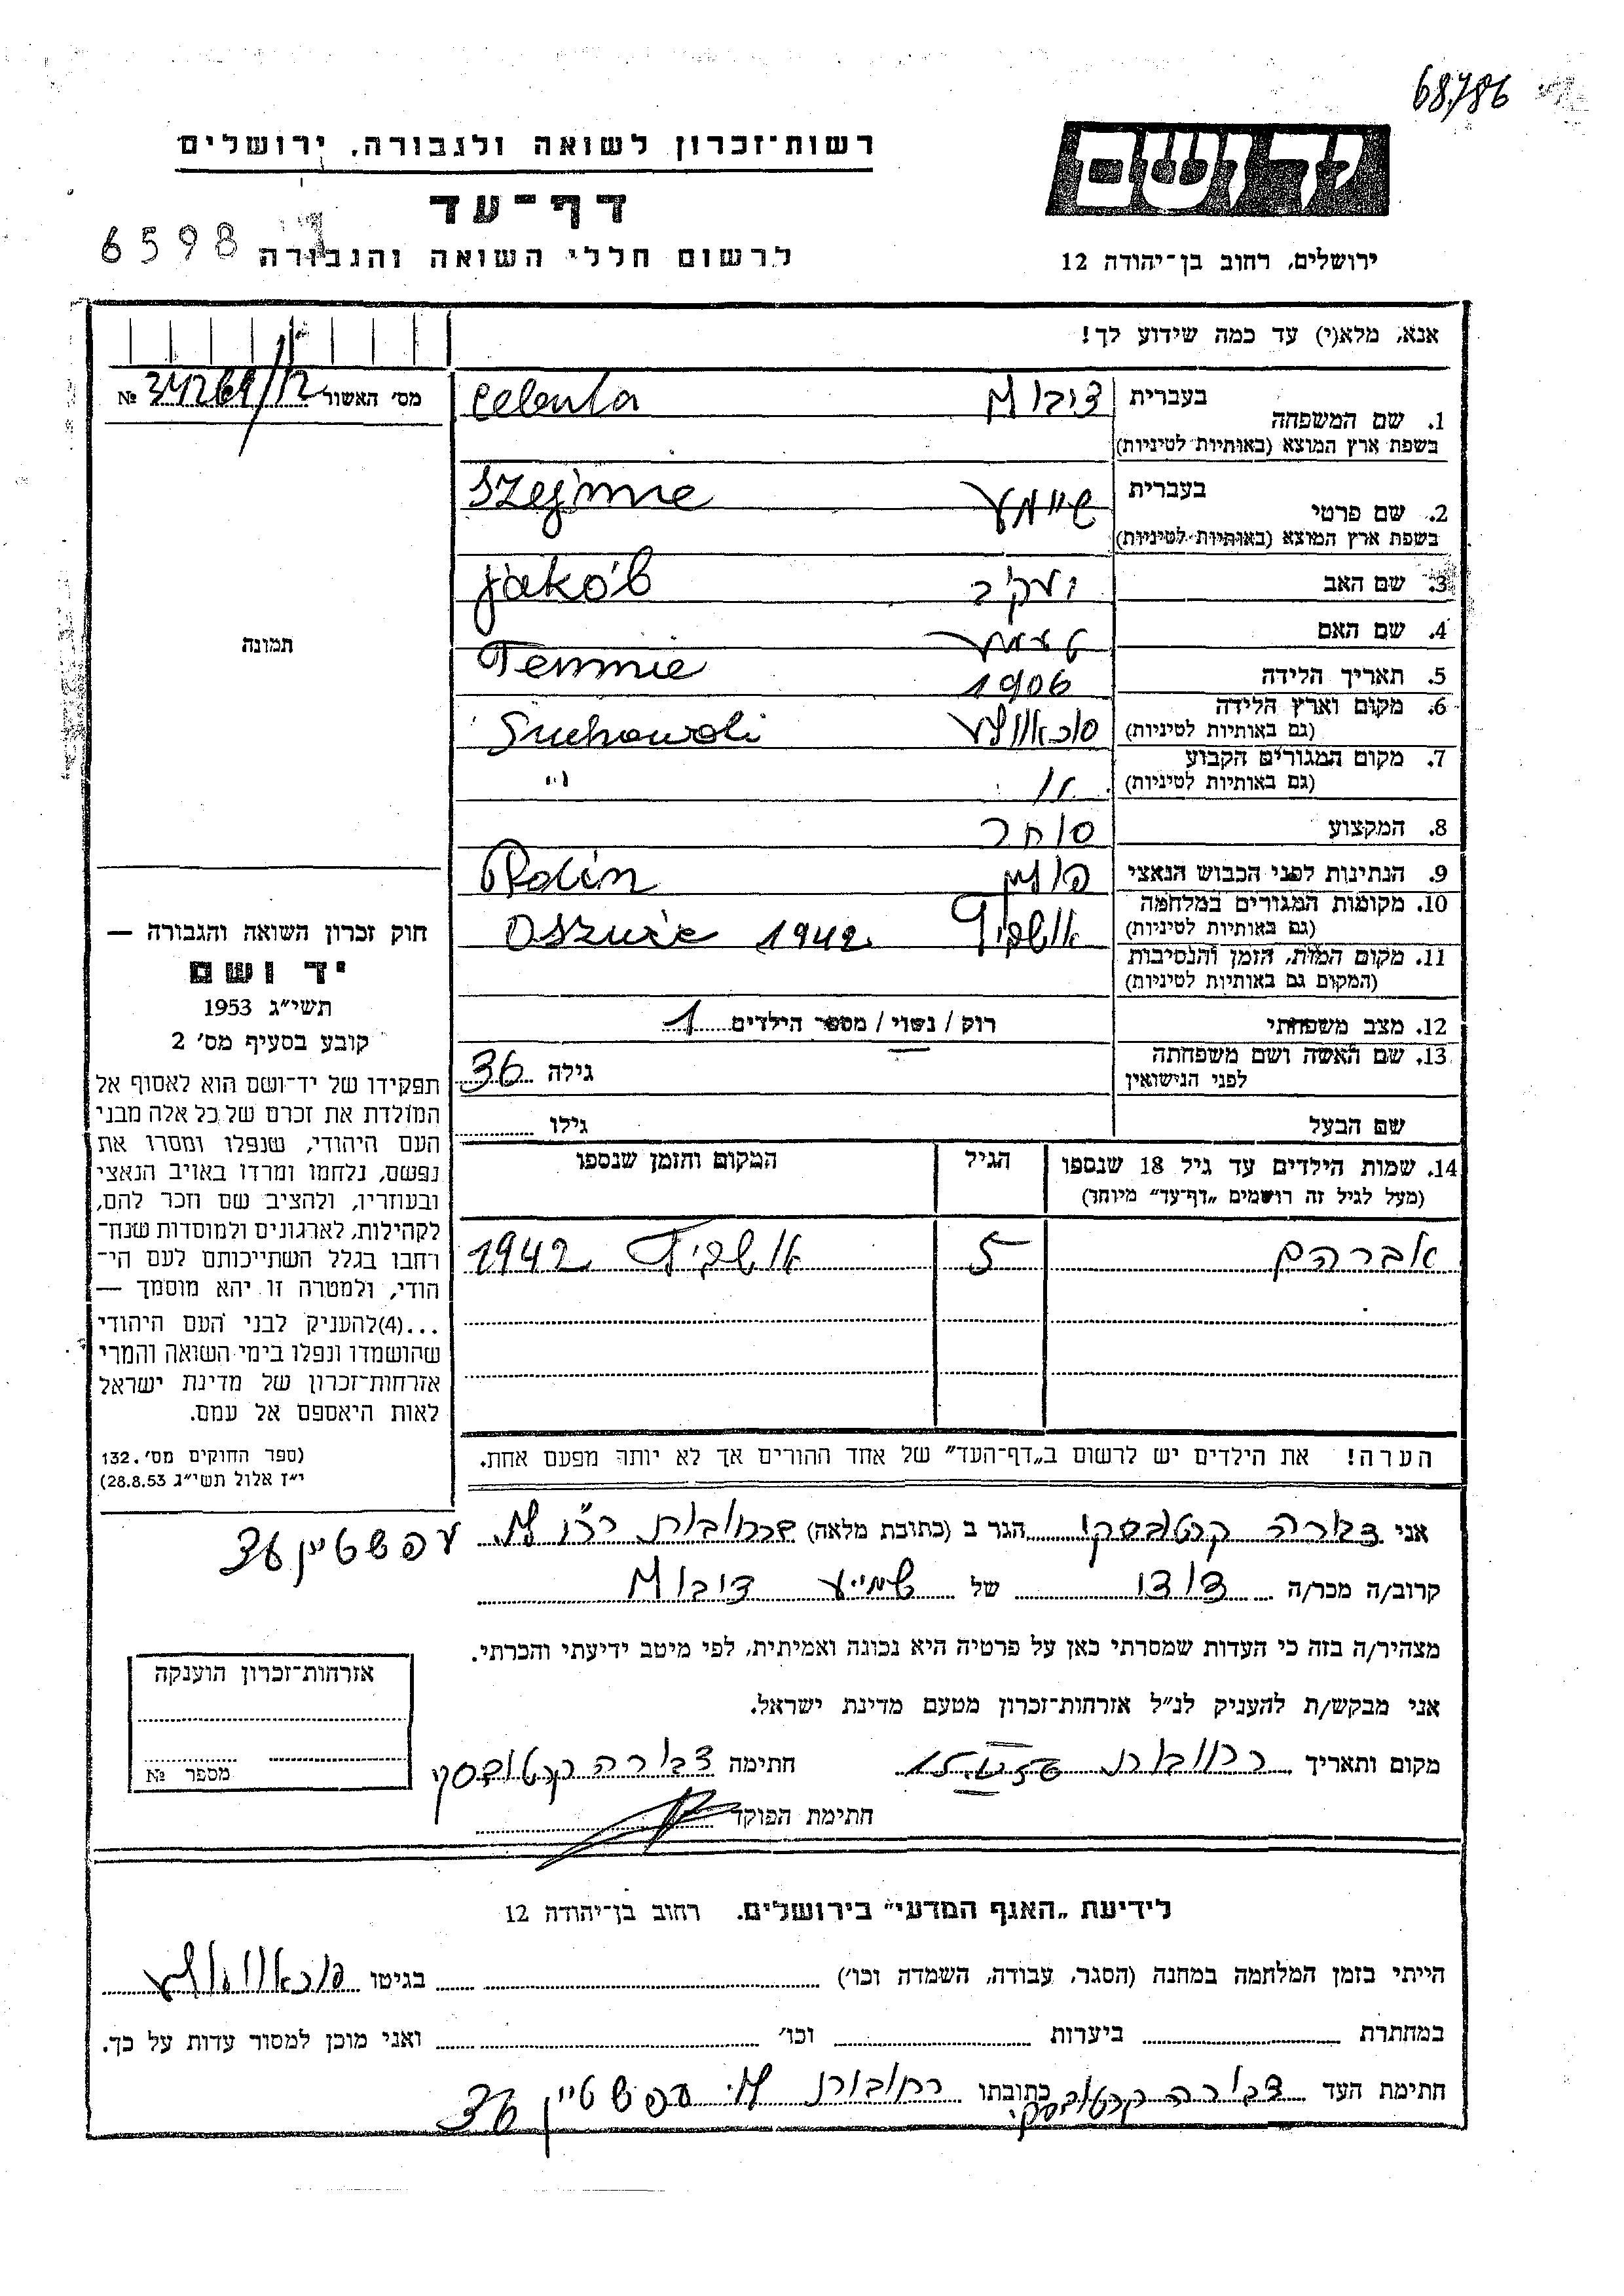 68/786
יד ושם
רשות־זכרון לשואה ולגבורה, ירושלים
דף־עד
לרשום חללי השואה והגבורה
6598
ירושלים, רחוב בן־יהודה 12
אנא, מלא(י) עד כמה שידוע לך!
מס׳ האשור №
1. שם המשפחה
בעברית
בשפת ארץ המוצא (באותיות לטיניות)
2. שם פרטי
בעברית
שיימע Szejmie
בשפת ארץ המוצא (באותיות לטיניות)
3. שם האב יעקב Jakób
4. שם האם Temmie
5. תאריך הלידה 1906
6. מקום וארץ הלידה
(גם באותיות לטיניות) Suchowoli
7. מקום המגורים הקבוע
(גם באותיות לטיניות) "
8. המקצוע סוחר
9. הנתינות לפני הכבוש הנאצי פולין Polin
10. מקומות המגורים במלחמה
(גם באותיות לטיניות) 1942
11. מקום המות, הזמן והנסיבות
(המקום גם באותיות לטיניות)
12. מצב משפחתי רוק / נשוי / מספר הילדים 1
13. שם האשה ושם משפחתה
לפני הנישואין גילה 36
שם הבעל גילו
14. שמות הילדים עד גיל 18 שנספו הגיל המקום והזמן שנספו
(מעל לגיל זה רושמים „דף־עד” מיוחד)
אברהם 5 1942
הערה! את הילדים יש לרשום ב„דף־העד” של אחד ההורים אך לא יותר מפעם אחת.
תמונה
חוק זכרון השואה והגבורה —
יד ושם
תשי״ג 1953
קובע בסעיף מס׳ 2
תפקידו של יד־ושם הוא לאסוף אל
המולדת את זכרם של כל אלה מבני
העם היהודי, שנפלו ומסרו את
נפשם, נלחמו ומרדו באויב הנאצי
ובעוזריו, ולהציב שם וזכר להם,
לקהילות, לארגונים ולמוסדות שנח־
רחבו בגלל השתייכותם לעם הי־
הודי, ולמטרה זו יהא מוסמך —
...(4)להעניק לבני העם היהודי
שהושמדו ונפלו בימי השואה והמרי
אזרחות־זכרון של מדינת ישראל
לאות היאספם אל עמם.
(ספר החוקים מס׳ 132.
י״ז אלול תשי״ג 28.8.53)
אני דבורה קרטובסקי הגר ב (כתובת מלאה)
קרוב/ה מכר/ה דודו של
מצהיר/ה בזה כי העדות שמסרתי כאן על פרטיה היא נכונה ואמיתית, לפי מיטב ידיעתי והכרתי.
אני מבקש/ת להעניק לנ״ל אזרחות־זכרון מטעם מדינת ישראל.
מקום ותאריך רחובות חתימה דבורה קרטובסקי
חתימת הפוקד
אזרחות־זכרון הוענקה
מספר №
לידיעת „האגף המדעי” בירושלים. רחוב בן־יהודה 12
הייתי בזמן המלחמה במחנה (הסגר, עבודה, השמדה וכו׳) בגיטו
במחתרת ביערות וכו׳ ואני מוכן למסור עדות על כך.
חתימת העד דבורה קרטובסקי כתובתו רחובות עפשטיין